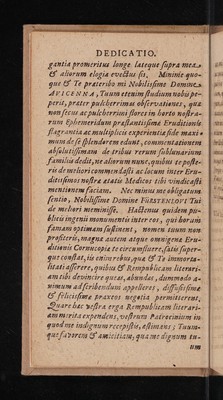 DEDICATIO.
gantia promeritus longe lateque supra mea
& aliorum elogia evectus sis. Minime quo-
que & Te præteribo mi Nobilissime Domine
AVICENNA, Tuum etenim studium nobis pe-
perit, præter pulcherrimas observationes, quæ
non secus ac pulcherrimi flores in horto nostra-
rum Ephemeridum præstantissima Eruditionis
flagrantia ac multiplicis experientia fide maxi-
mum de se splendorem edunt, commentationem
absolutissimam de tribus rerum sublunarium
familiis dedit, ne aliorum nunc, quibus te poste-
ris de meliori commendasti ac locum inter Eru-
ditissimos nostra ætatis Medicos tibi vindicasti
mentionem faciam. Nec minus me obligatum
sentio, Nobilissime Domine FÜRSTENLOY! Tui
de meliori meminisse. Hactenus quidem pu-
blicis ingenii monumentis inter eos, qui horum
famam optimam sustinent, nomen tuum non
professeris, magna autem atque omnigena Eru-
ditionis Cornucopia te circumfluere, satis super-
que constat, iis enim rebus, qua & Te immorta-
litati asserere, quibus & Rempublicam literari-
am tibi devincire queas, abundas, dummodo a-
nimum ad scribendum appelleres, diffusissima
& felicissima praxeos negotia permitterent.
Quare hac vestra erga Rempublicam literari-
am merita expendens, vestrum Patrocinium in
quod me indignum recepistis, æstimans; Tuum-
que favorem & amicitiam, qua me dignum tu-
um